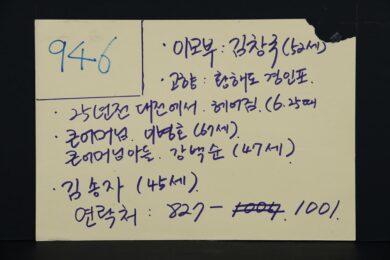 946
· 이모부 : 김창국 (52세)
· 고향 : 황해도 겸인포.
· 25년전 대전에서 헤어짐. (6.25때
· 큰어머님. 이병호 (67세).
큰어머님아들. 강백순 (47세)
· 김송자 (45세)
연락처 : 827 - 1004 1001.